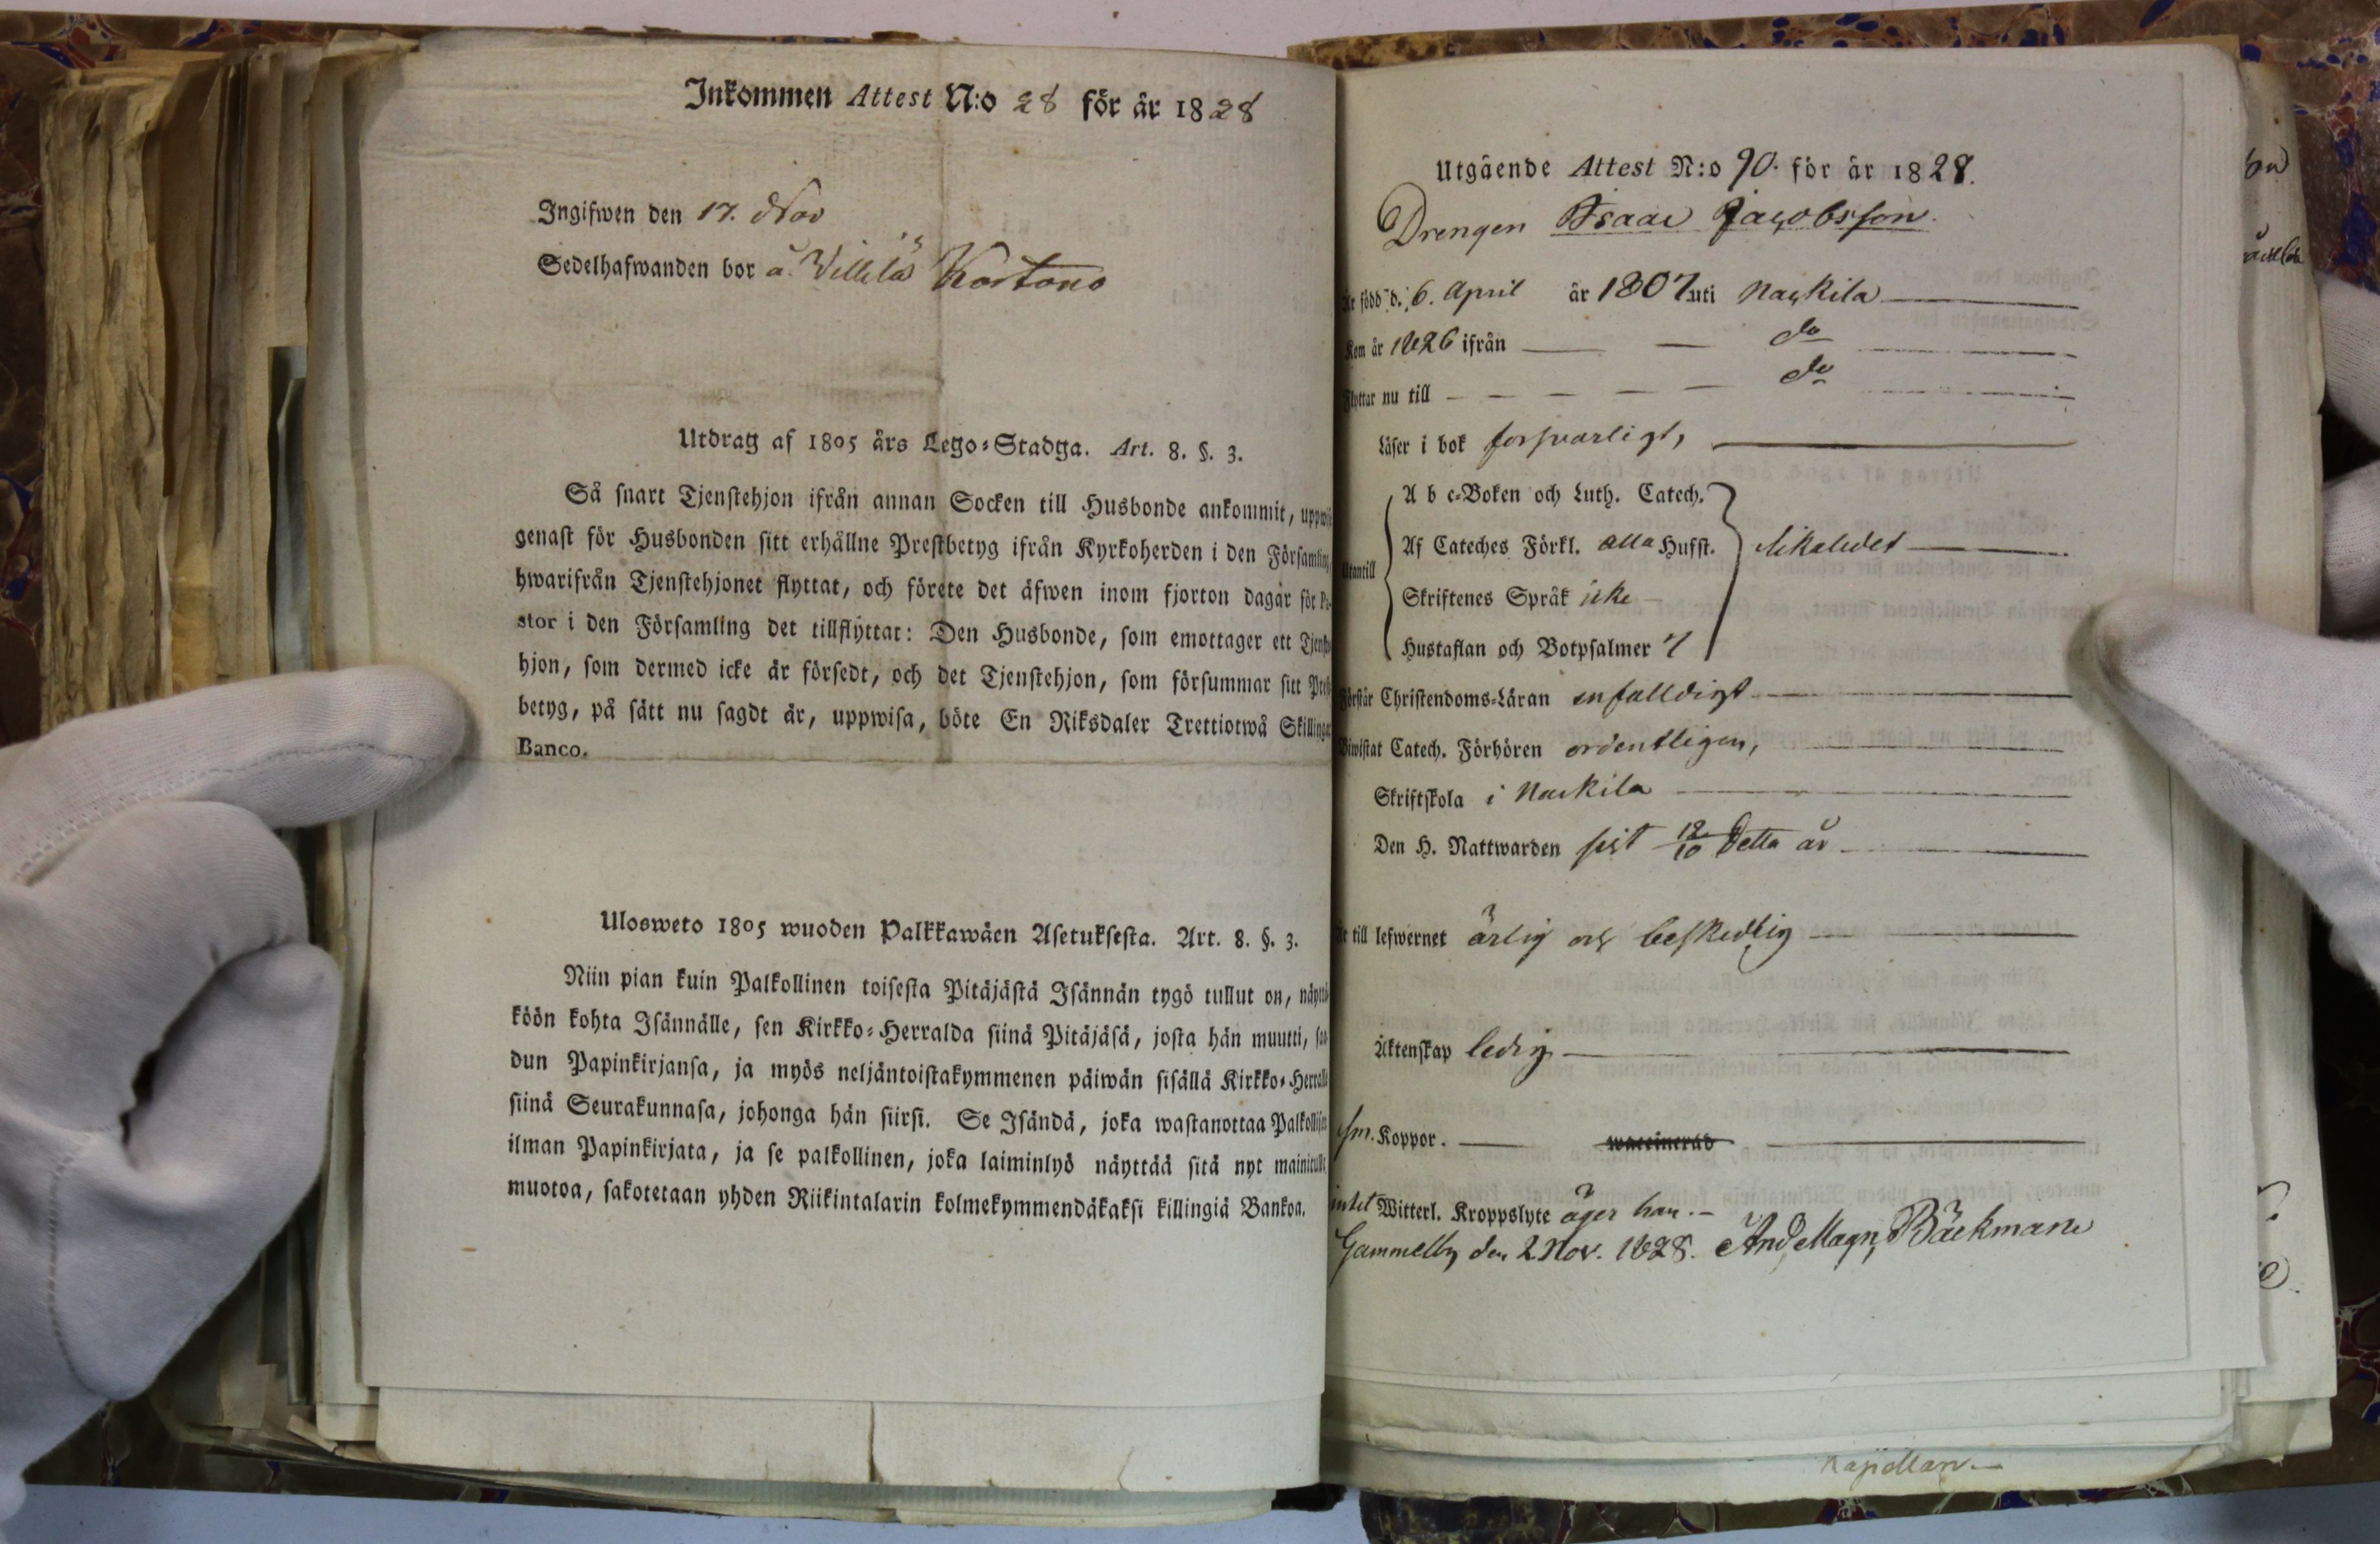 Inkommen Attest N:o 28 för år 1828
Ingifwen den 17. Nov
Sedelhafwanden bor å Villilä Kortono
Utdrag af 1805 års Lego-Stadga. Art. 8. §. 3.
Så snart Tjenstehjon ifrån annan Socken till Husbonde ankommit, uppwi
genast för Husbonden sitt erhållne Prestbetyg ifrån Kyrkoherden i den Församling
hwarifrån Tjenstehjonet flyttat, och förete det äfwen inom fjorton dagar för Pa-
stor i den Församling det tillflyttat: Den Husbonde, som emottager ett Tjenste
hjon, som dermed icke är försedt, och det Tjenstehjon, som försummar sitt Prest
betyg, på sätt nu sagdt är, uppwisa, böte En Riksdaler Trettiotwå Skillingar
Banco.
Ulosweto 1805 wuoden Palkkawäen Asetuksesta. Art. 8. §. 3.
Niin pian kuin Palkollinen toisesta Pitäjästä Isännän tygö tullut on, näyttä
köön kohta Isännälle, sen Kirkko-Herralda siinä Pitäjäsä, josta hän muutti, saa
dun Papinkirjansa, ja myös neljäntoistakymmenen päiwän sisällä Kirkko-Herralle
siinä Seurakunnasa, johonga hän siirsi. Se Isändä, joka wastanottaa Palkollisen
ilman Papinkirjata, ja se palkollinen, joka laiminlyö näyttää sitä nyt mainitulla
muotoa, sakotetaan yhden Riikintalarin kolmekymmendäkaksi killingiä Bankoa.
Utgående Attest N:o 90. för år 1828.
Drengen Isaac Jacobsson.
Är född d. 6. April år 1807 uti Nackila
Kom år 1826 ifrån do
Flyttar nu till do
Läser i bok forsvarligt,
A b c-Boken och Luth. Catech.
Af Cateches Förkl. alla Hufst. likaledes
Utantill
Skriftenes Språk icke
Hustaflan och Botpsalmer 7
Förstår Christendoms-Läran enfalldigt
Biwistat Catech. Förhören ordentligen,
Skriftskola i Nackila
Den H. Nattwarden sist 12/10 detta år
Är till lefwernet ärlig och beskedlig
Äktenskap ledig
sm. Koppor. waccinerad
intet Witterl. Kroppslyte äger han.
Gammelby den 2 Nov. 1828. And Magn Bäckman
Kapellan